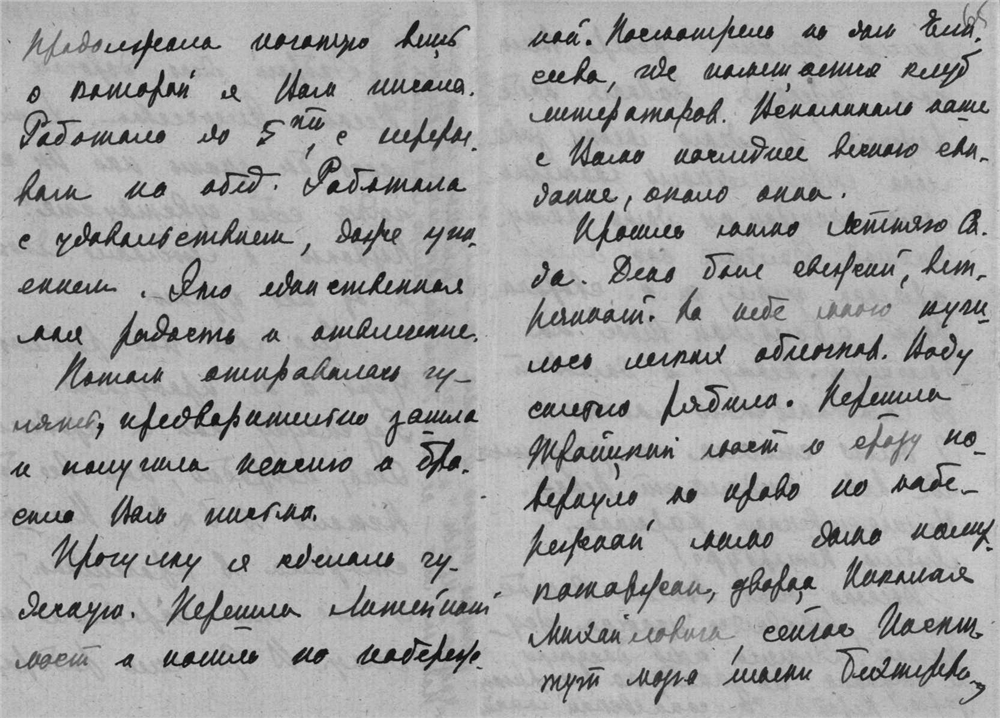 Продолжала начатую вещь
о которой я Вам писала.
Работала до 5ти, с переры-
вом на обед. Работала
с удовольствием, даже упо-
ением. Это единственная
моя радость и отвлечение.
Потом отправилась гу-
лять, предварительно зашла
и получила пенсию и бро-
сила Вам письма.
Прогулку я сделала чу-
десную. Перешла Литейный
мост и пошла по набереж-
ной. Посмотрела на дом Ели-
сеева, где помещается клуб
литераторов. Вспомнила наше
с Вами последнее вечное сви-
дание, около окна.
Прошла мимо Летнего Са-
да. День был свежий, вет-
ренный. На небе много
лось легких облачков. Воду
сильно рябило. Перешла
Троицкий мост и сразу по-
вернула на право по набе-
режной мимо дома
дворца Николая
Михайловича сейчас Инсти-
тут мозга имени Бехтерева,